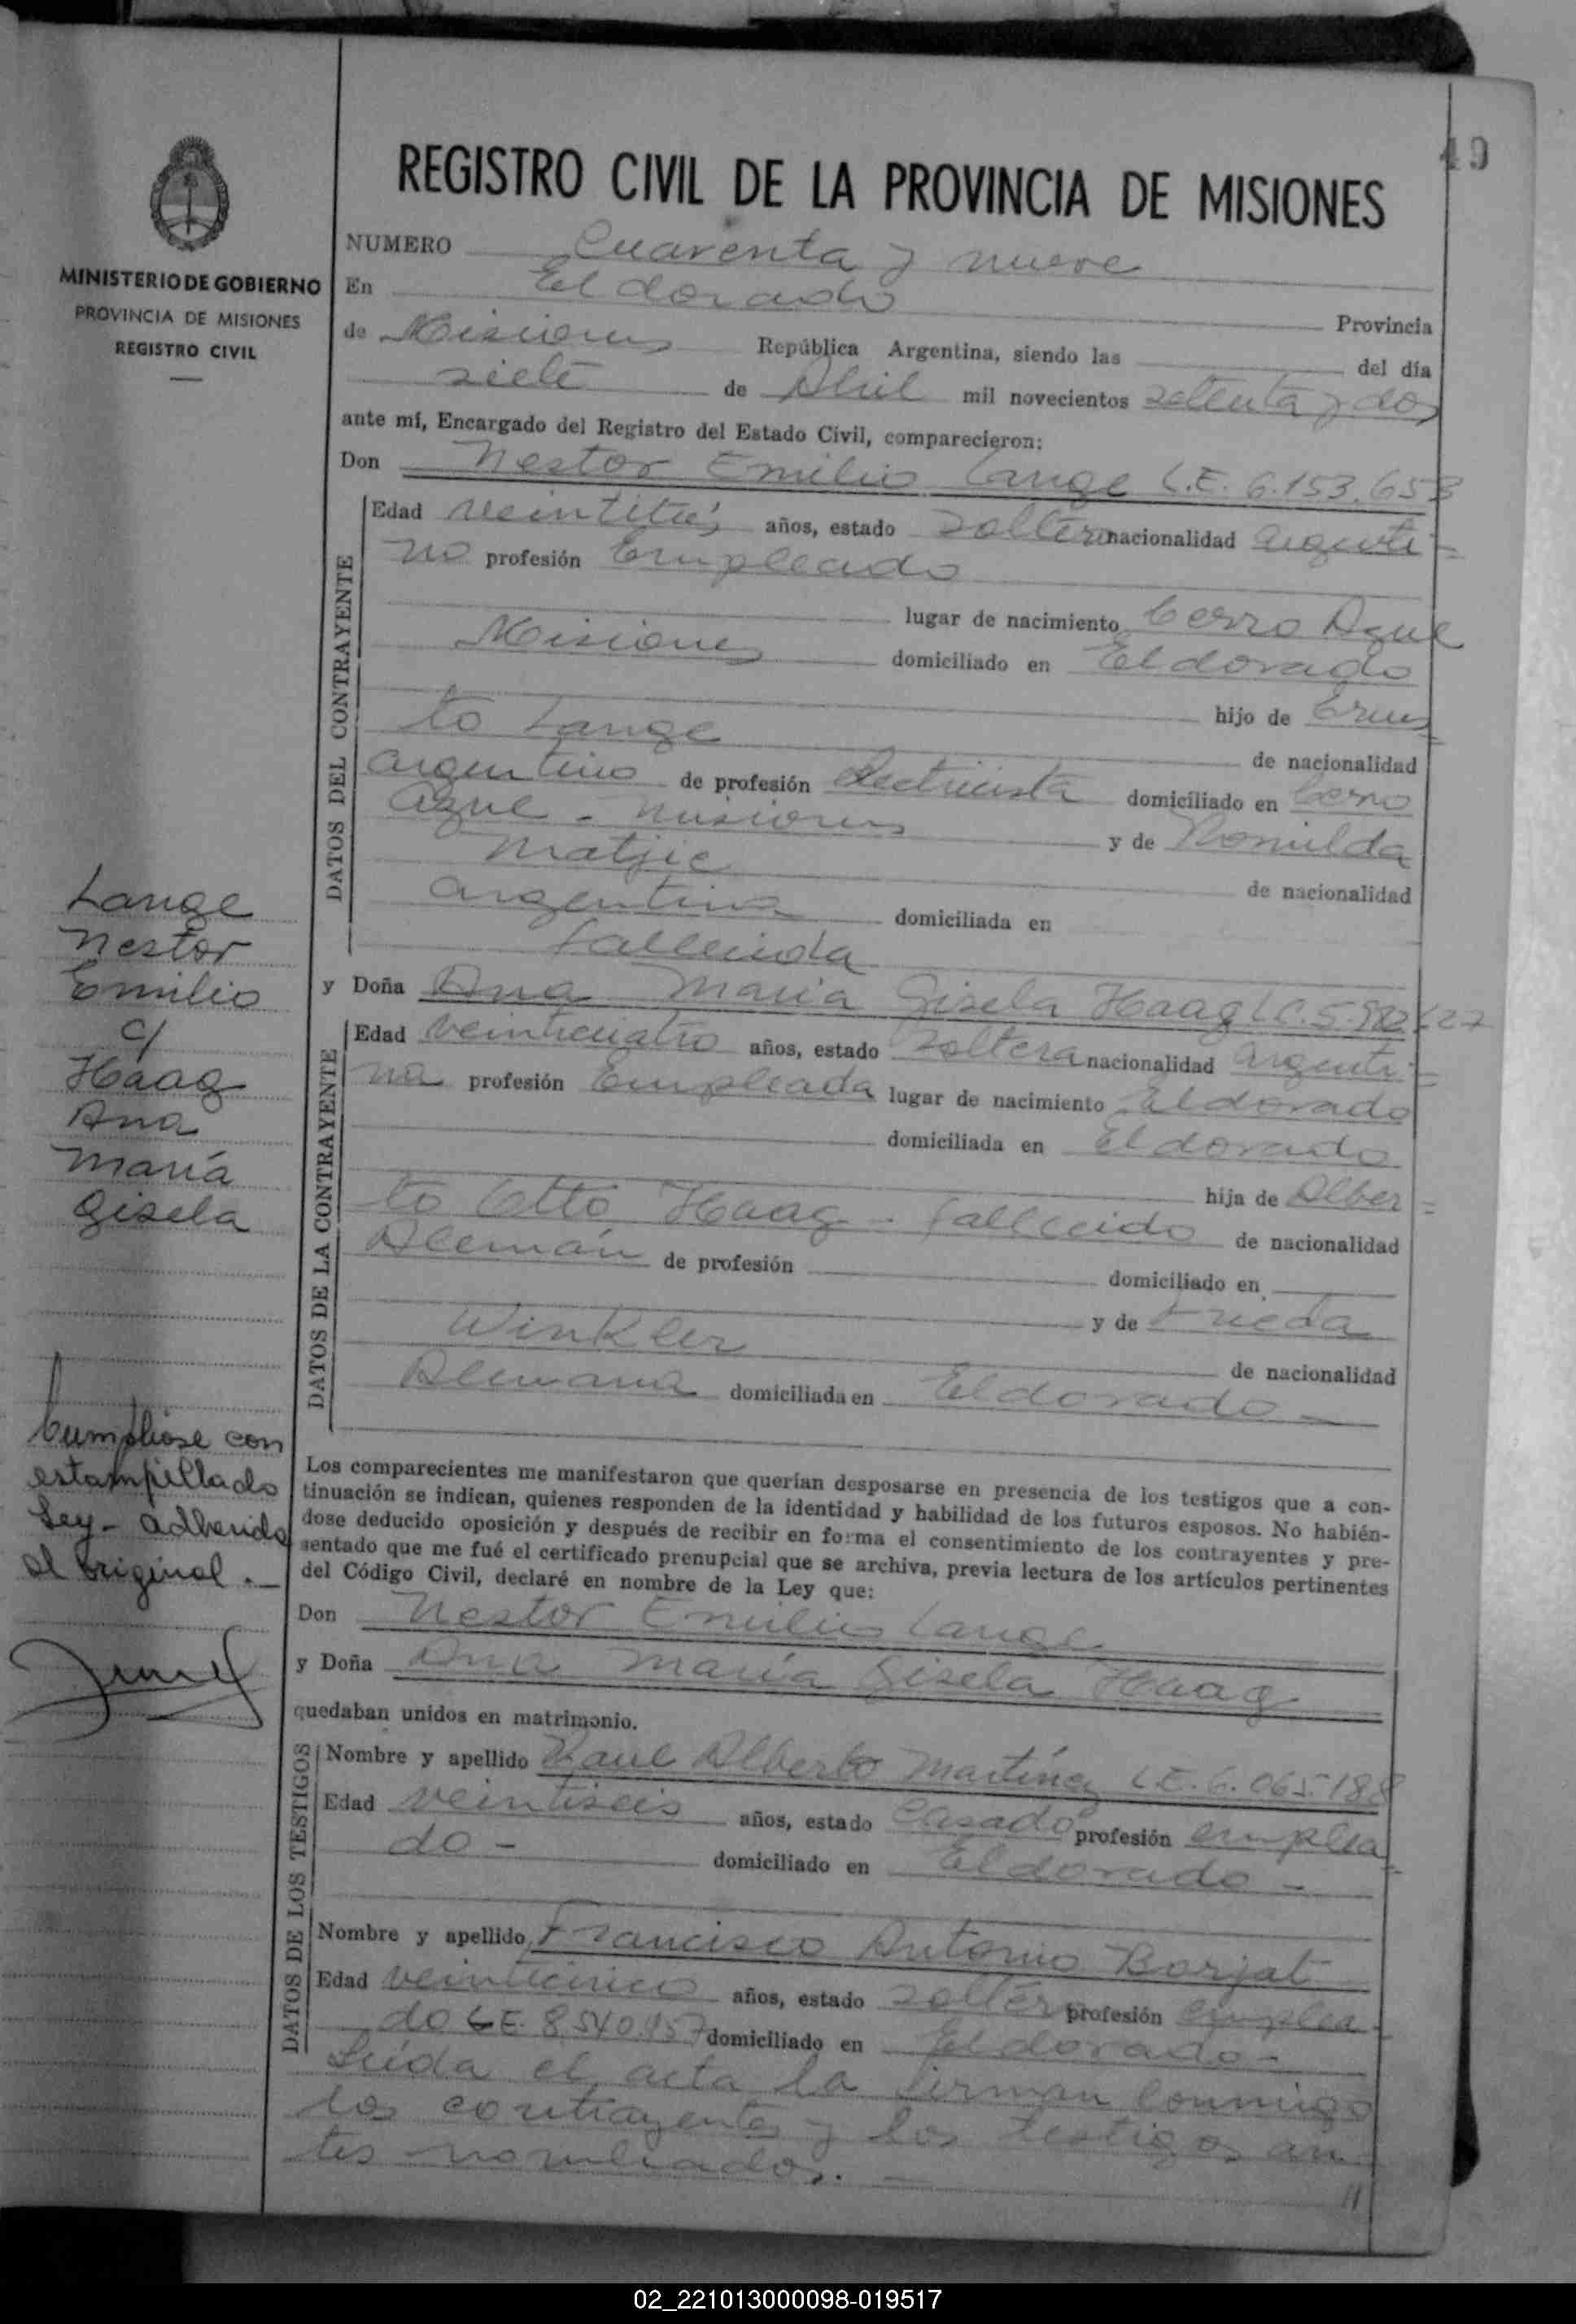 49
REGISTRO CIVIL DE LA PROVINCIA DE MISIONES
MINISTERIO DE GOBIERNO
PROVINCIA DE MISIONES
REGISTRO CIVIL
NUMERO Cuarenta y nueve
En Eldorado Provincia
de Misiones República Argentina, siendo las del día
siete de Abril mil novecientos setenta y dos
ante mí, Encargado del Registro del Estado Civil, comparecieron:
Don Nestor Emilio Lange L.E. 6.153.653
DATOS DEL CONTRAYENTE
Edad veintitrés años, estado soltero nacionalidad argenti=
no profesión Empleado
lugar de nacimiento Cerro Azul
Misiones domiciliado en Eldorado
hijo de Ernes=
to Lange de nacionalidad
argentino de profesión electricista domiciliado en Cerro
Azul - Misiones y de Romilda
Matjie de nacionalidad
argentina domiciliada en
fallecida
y Doña Ana Maria Gisela Haag L.C. 5.
DATOS DE LA CONTRAYENTE
Edad veinticuatro años, estado soltera nacionalidad argenti=
na profesión Empleada lugar de nacimiento Eldorado
domiciliada en Eldorado
hija de Alber=
to Otto Haag - fallecido de nacionalidad
Alemán de profesión domiciliado en
y de Frieda
Winkler de nacionalidad
Alemana domiciliada en Eldorado -
Los comparecientes me manifestaron que querían desposarse en presencia de los testigos que a con-
tinuación se indican, quienes responden de la identidad y habilidad de los futuros esposos. No habién-
dose deducido oposición y después de recibir en forma el consentimiento de los contrayentes y pre-
sentado que me fué el certificado prenupcial que se archiva, previa lectura de los artículos pertinentes
del Código Civil, declaré en nombre de la Ley que:
Don Nestor Emilio Lange
y Doña Ana María Gisela Haag
quedaban unidos en matrimonio.
DATOS DE LOS TESTIGOS
Nombre y apellido Raul Alberto Martínez L.E. 6.065.188
Edad veintiseis años, estado Casado profesión emplea=
do - domiciliado en Eldorado -
Nombre y apellido Francisco Antonio Borjat
Edad veinticinco años, estado soltero profesión emplea-
do L.E. 8.540.957 domiciliado en Eldorado -
Leída el acta la firman conmigo
los contrayentes y los testigos an-
tes nombrados. -
//
Lange
Nestor
Emilio
c/
Haag
Ana
María
Gisela
Cumpliose con
estampillado
Ley - adherido
al original. -
02_221013000098-019517